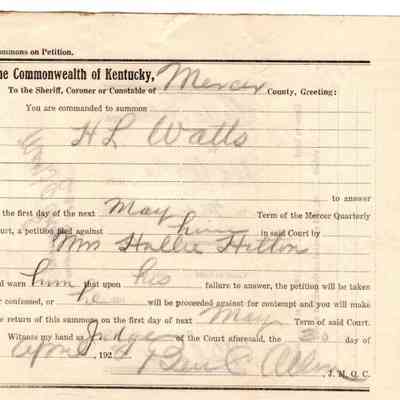 mmons on Petition.
he Commonwealth of Kentucky,
To the Sheriff, Coroner or Constable of Mercer County, Greeting:
You are commanded to summon
H L Watts
to answer
the first day of the next May Term of the Mercer Quarterly
ourt, a petition filed against him in said Court by
Mrs Hallie Hilton
d warn him that upon his failure to answer, the petition will be taken
r confessed, or he will be proceeded against for contempt and you will make
e return of this summons on the first day of next May Term of said Court.
Witness my hand as Judge of the Court aforesaid, the 20 day of
192 Ben C Allin
J. M. Q. C.